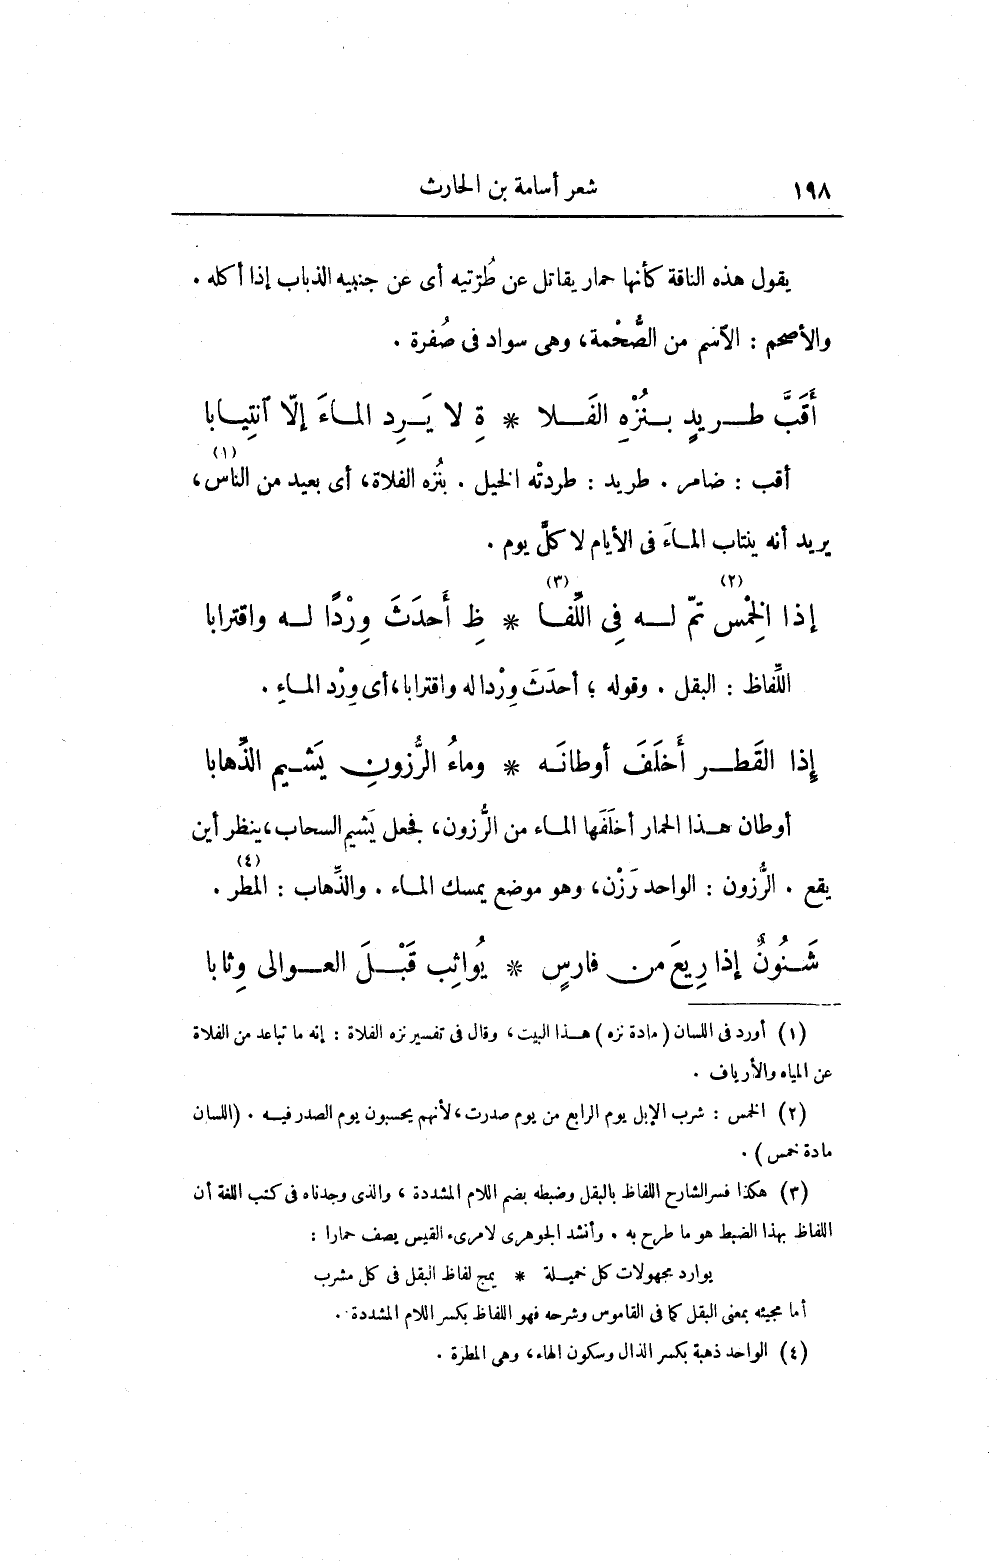 ١٩٨ شعر أسامة بن الحارث
يقول هذه الناقة كأنها حمار يقاتل عن طُرّتيه أى عن جنبيه الذباب إذا أكله .
والأصحم : الآسَم من الصُّحْمة، وهى سواد فى صُفرة .
أَقَبَّ طريدٍ بنُزْهِ الفَلا * ةِ لا يَرِد الماءَ إلّا ٱنتِيابا
أقب : ضامر . طريد : طردتْه الخيل . بنُزه الفلاة، أى بعيد من الناس (١)،
يريد أنه ينتاب الماءَ فى الأيام لا كلَّ يوم .
إذا الخِمْس (٢) تمّ له فِى اللُّفا (٣) * ظِ أَحدَثَ وِرْدًا له واقترابا
اللُّفاظ : البقل . وقوله ؛ أحدَثَ وِرْدا له واقترابا، أى وِرْد الماءِ .
إِذا القَطر أَخلَفَ أوطانَه * وماءُ الرُّزونِ يَشيم الذِّهابا
أوطان هذا الحمار أخلَفَها الماء من الرُّزون، فجعل يَشيم السحاب، ينظر أين
يقع . الرُّزون : الواحد رَزْن، وهو موضع يمسك الماء . والذِّهاب : المطر (٤) .
شَنُونٌ إذا رِيعَ من فارسٍ * يُواثِب قَبْلَ العوالى وِثابا
(١) أورد فى اللسان ( مادة نزه ) هذا البيت، وقال فى تفسير نزه الفلاة : إنه ما تباعد من الفلاة
عن المياه والأرياف .
(٢) الخمس : شرب الإبل يوم الرابع من يوم صدرت، لأنهم يحسبون يوم الصدر فيه . (اللسان
مادة خمس ) .
(٣) هكذا فسر الشارح اللفاظ بالبقل وضبطه بضم اللام المشددة ، والذى وجدناه فى كتب اللغة أن
اللفاظ بهذا الضبط هو ما طرح به . وأنشد الجوهرى لامرىء القيس يصف حمارا :
يوارد مجهولات كل خميلة * يمج لفاظ البقل فى كل مشرب
أما مجيئه بمعنى البقل كما فى القاموس وشرحه فهو اللفاظ بكسر اللام المشددة .
(٤) الواحد ذهبة بكسر الذال وسكون الهاء، وهى المطرة .